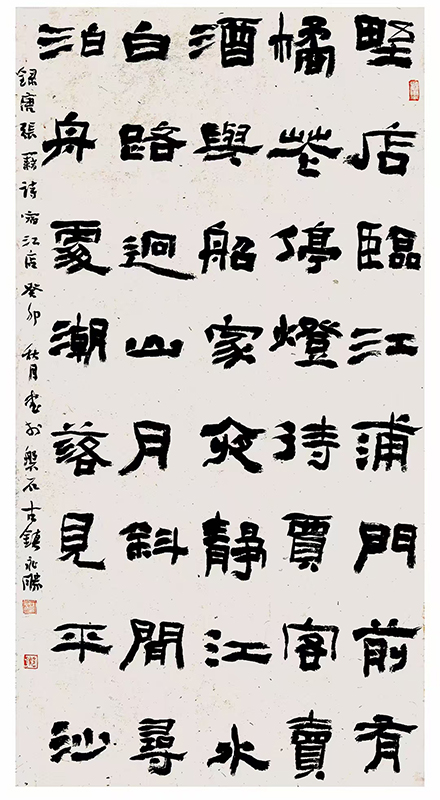 野店臨江浦門前有
橘花停燈待賈客賣
酒與船家夜靜江水
白路迥山月斜閒尋
泊舟處潮落見平沙
録唐張籍詩宿江店癸卯秋月書於磐石古鎮永